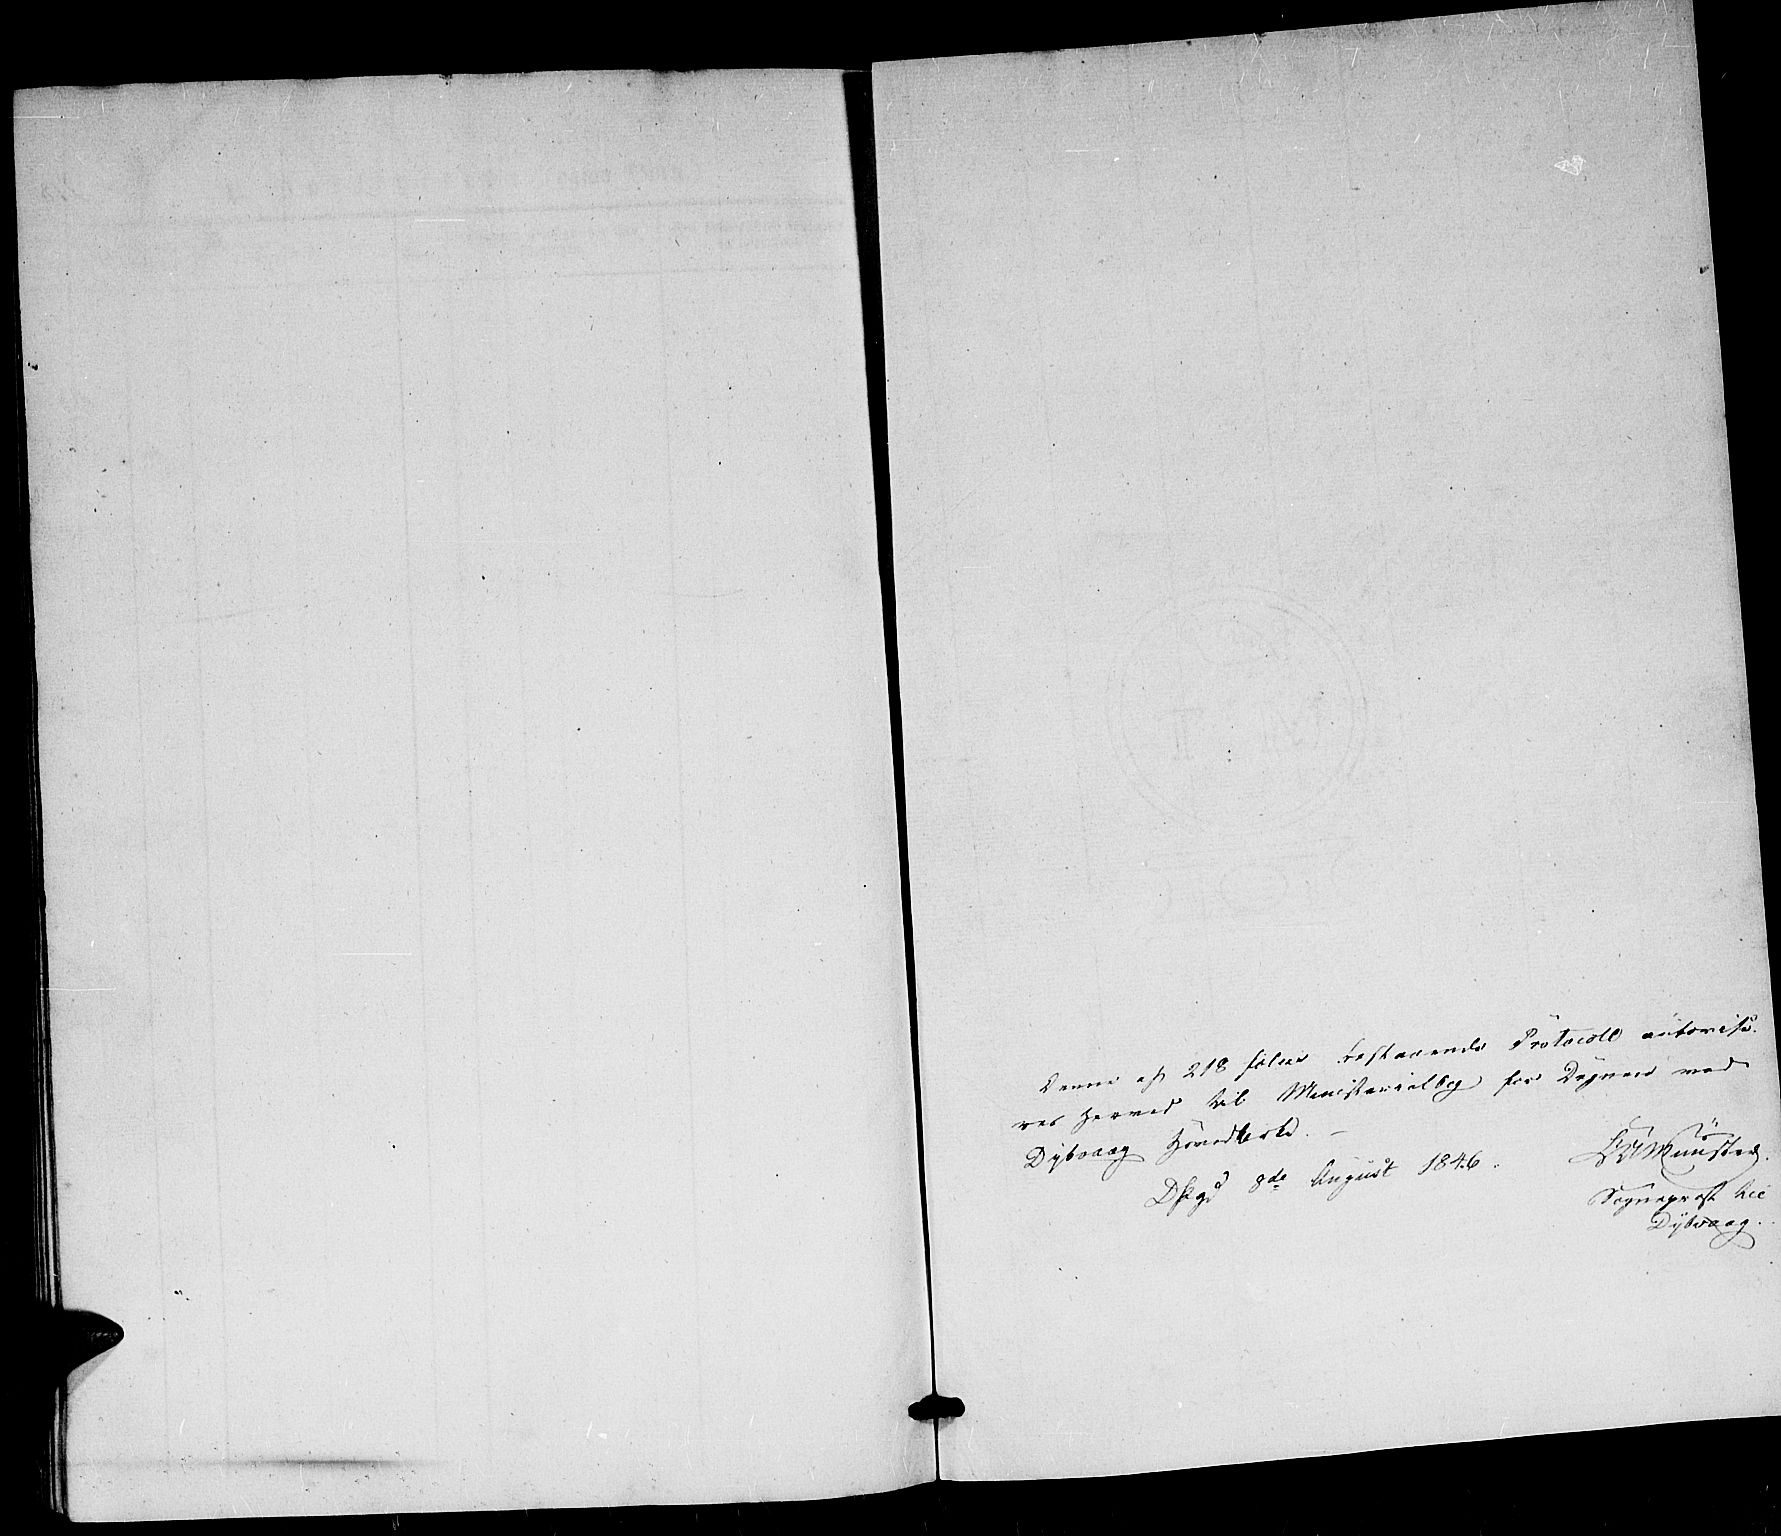 Denne af 218 folier bestaaende Protocoll autorise-
res herved til Ministerialbog for Degnen ved
Dybvaag Hovedkirke. –
Dpgd 8de August 1846.
Münster.
Sogneprest til
Dybvaag.